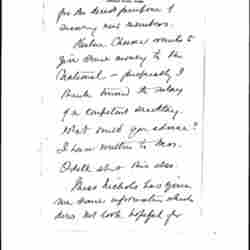 for the direct purpose of
securing new members.
wants to
give some money to the
National – preferably I
think toward the salary
of a competent secretary.
What would you advise?
I have written to Mrs.
Odell about this also.
Miss Nichols has given
me some information which
does not look hopeful for